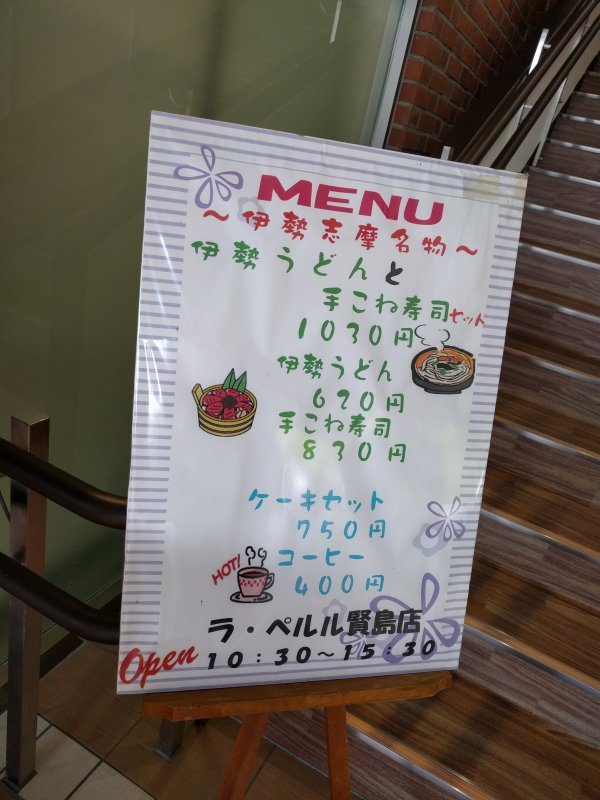 MENU
～伊勢志摩名物～
伊勢うどんと
手こね寿司セット
1030円
伊勢うどん
620円
手こね寿司
830円
ケーキセット
750円
HOT! コーヒー
400円
ラ・ペルル賢島店
Open 10:30～15:30